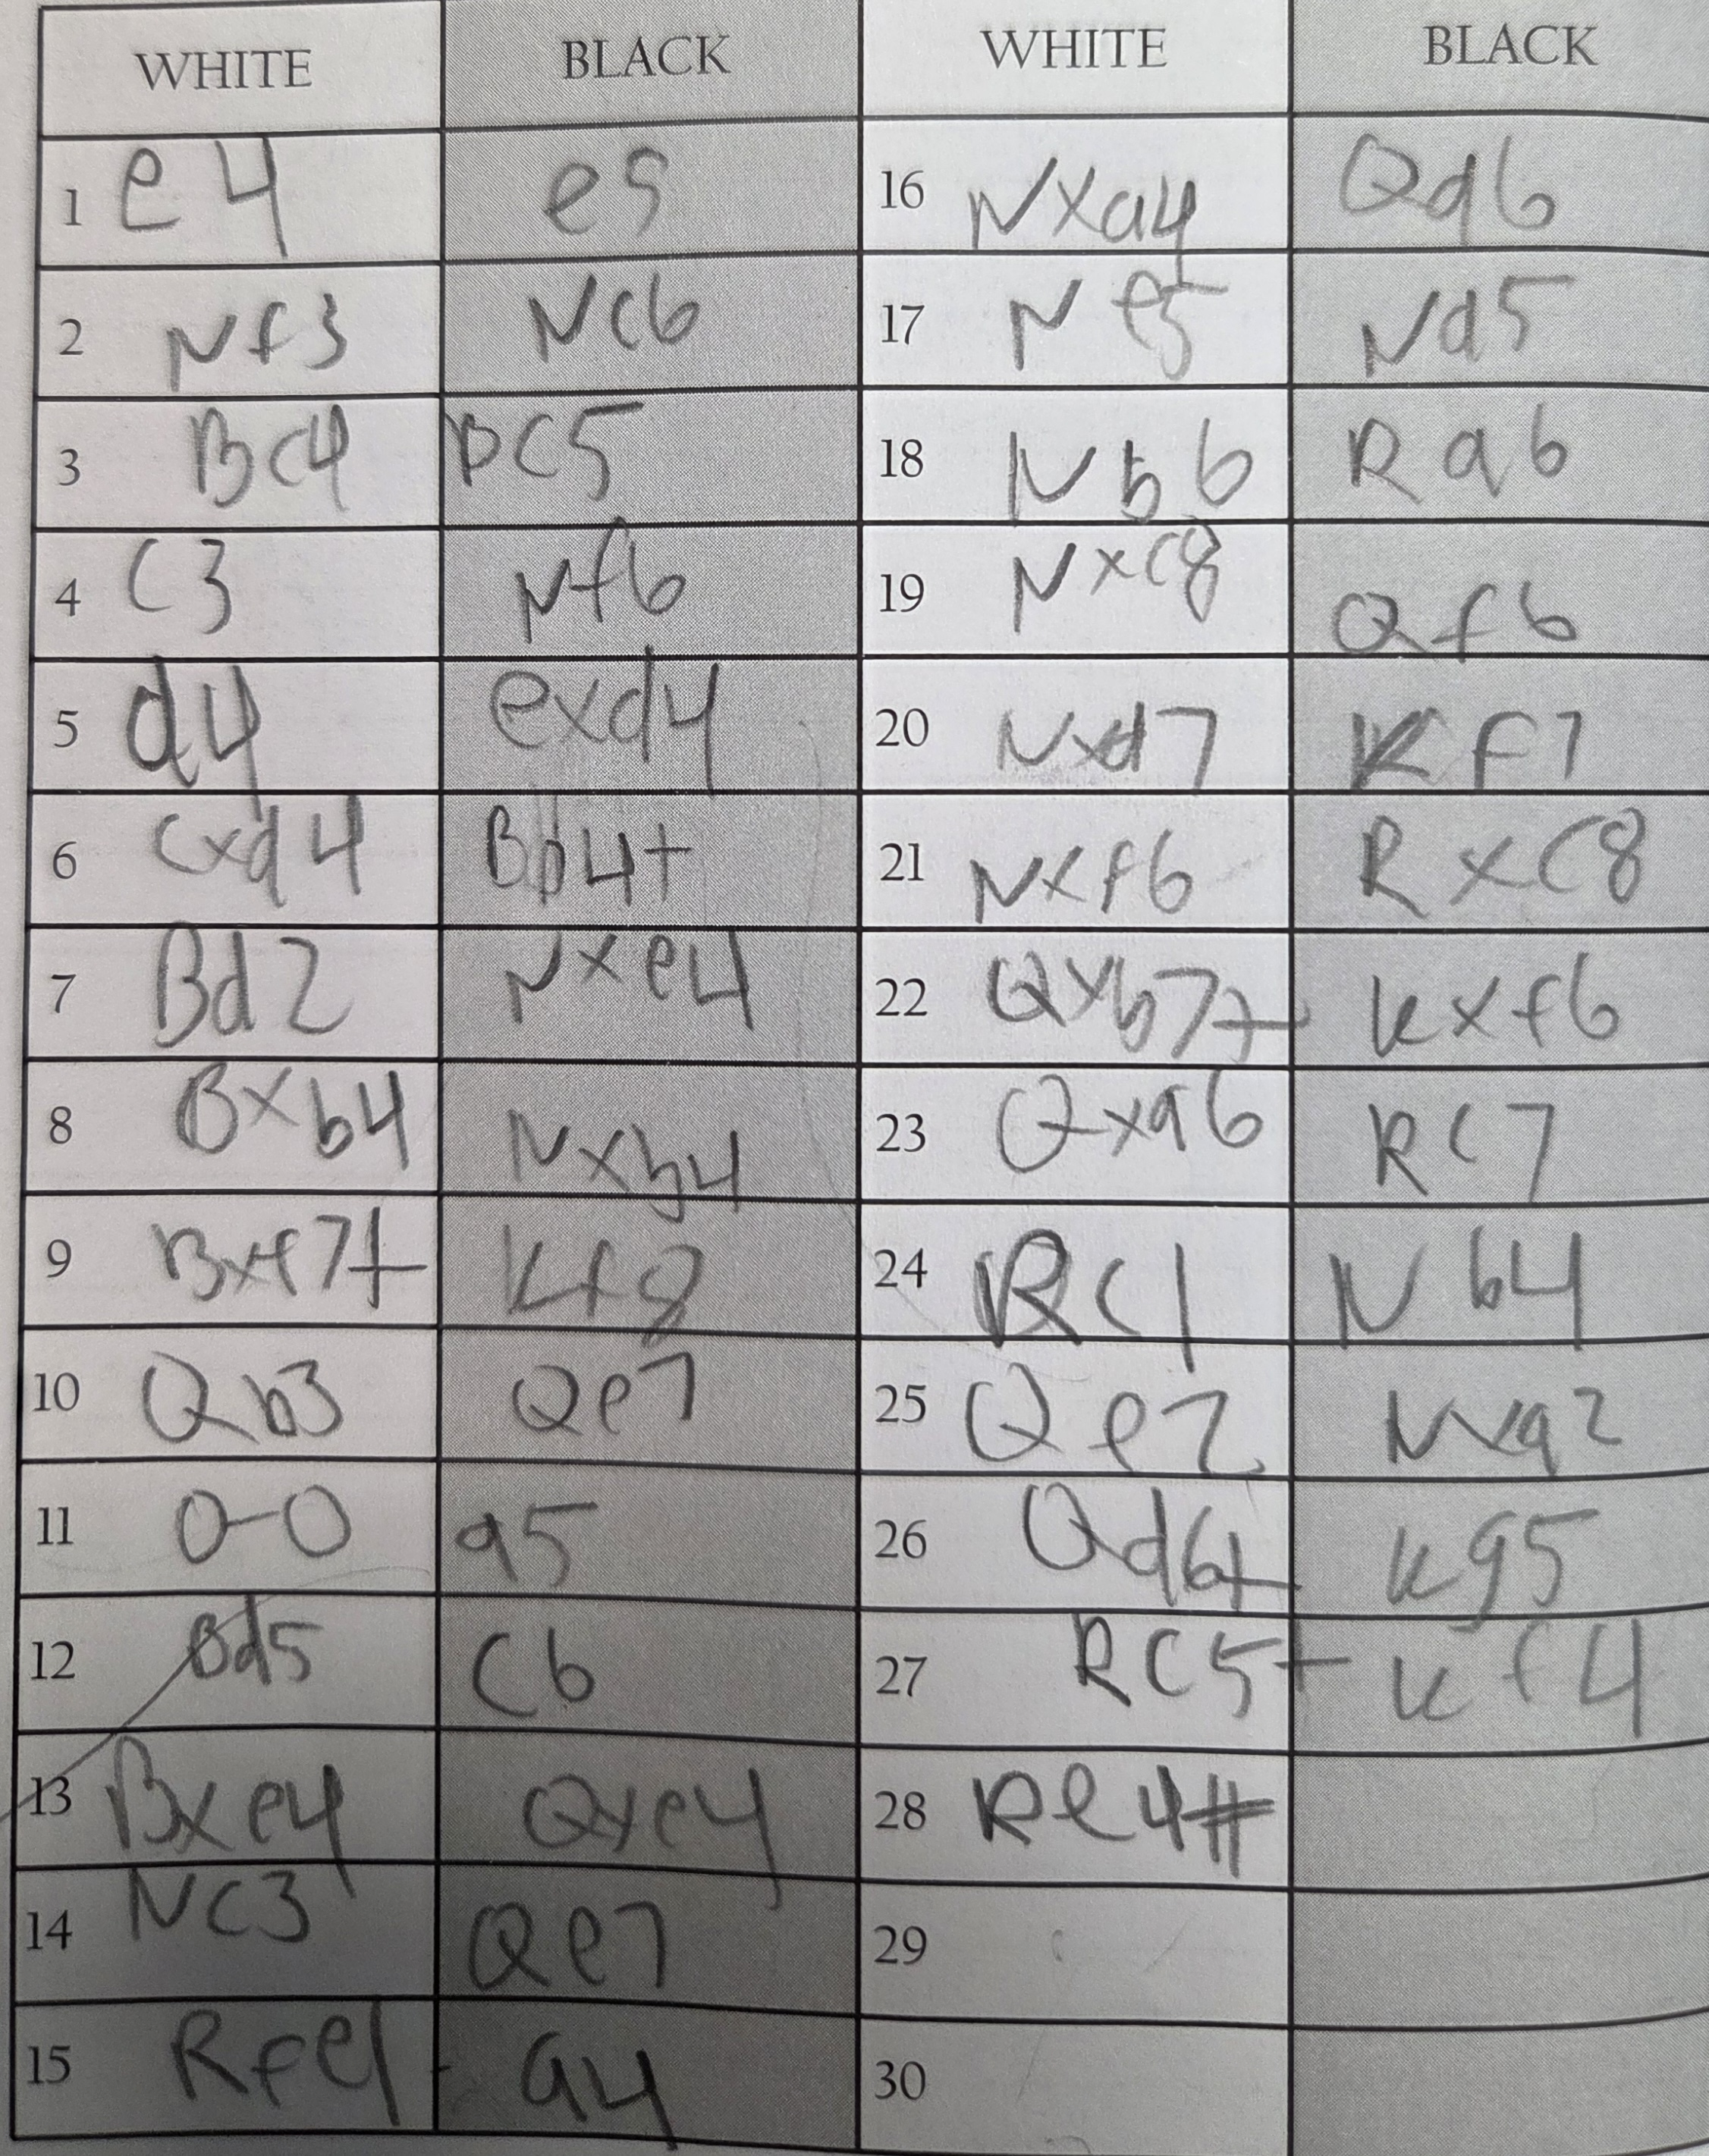 WHITE BLACK WHITE BLACK
1 e4 e5 16 Nxa4 Qd6
2 Nf3 Nc6 17 Ne5 Nd5
3 Bc4 BC5 18 Nb6 Ra6
4 C3 Nf6 19 Nxc8 Qf6
5 d4 exd4 20 Nxd7 Kf7
6 Cxd4 Bb4+ 21 Nxf6 RxC8
7 Bd2 Nxe4 22 Qxb7+ Kxf6
8 Bxb4 Nxb4 23 Qxa6 RC7
9 Bxf7+ Kf8 24 RC1 Nb4
10 Qb3 Qe7 25 Qe2 Nxa2
11 O-O a5 26 Qd6+ Kg5
12 Bd5 C6 27 RC5+ Kf4
13 Bxe4 Qxe4 28 Re4#
14 NC3 Qe7 29
15 Rfe1 a4 30